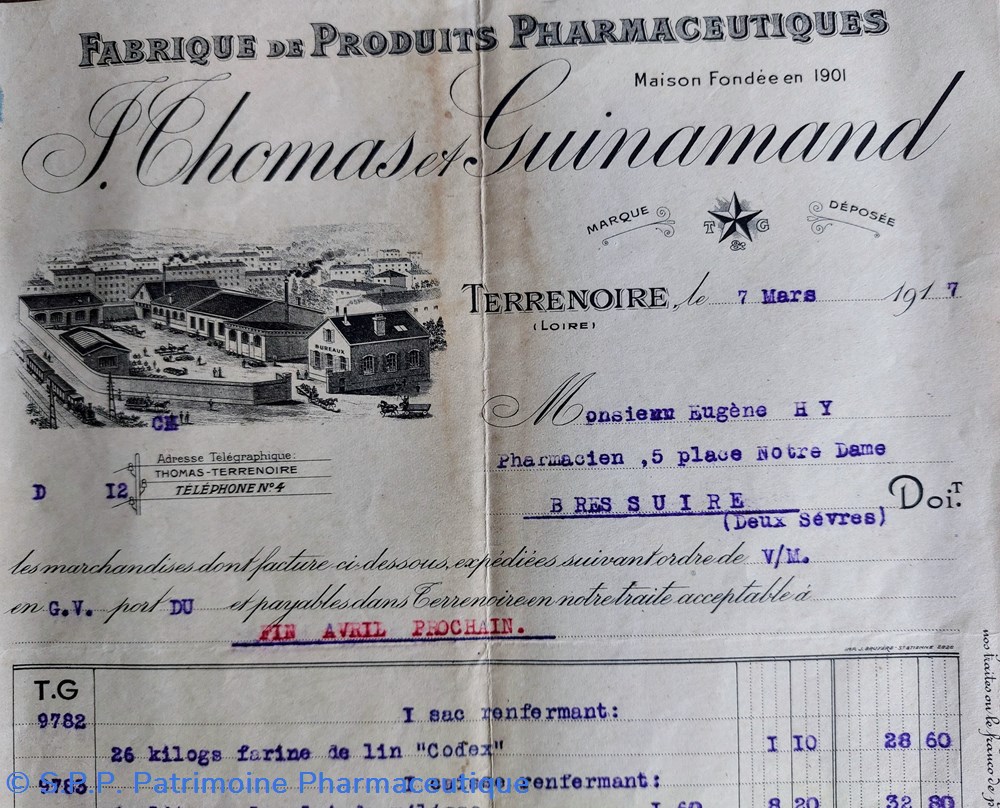 FABRIQUE DE PRODUITS PHARMACEUTIQUES
Maison Fondée en 1901
J. Thomas et Guinamand
MARQUE T & G DÉPOSÉE
TERRENOIRE, le 7 Mars 1917
(LOIRE)
BUREAUX
Monsieur Eugène H Y
Pharmacien ,5 place Notre Dame
BRESSUIRE DOIT.
(Deux Sévres)
Adresse Télégraphique:
THOMAS-TERRENOIRE
TÉLÉPHONE Nº 4
D I2
les marchandises dont facture ci-dessous, expédiées suivant ordre de V/M.
en G.V. port DU et payables dans Terrenoire en notre traite acceptable à
FIN AVRIL PROCHAIN.
T.G
9782 I sac renfermant:
26 kilogs farine de lin "Codex" I 10 28 60
9783 renfermant:
I 60 8 20 32 80
nos traites ou le
© S.R.P. Patrimoine Pharmaceutique